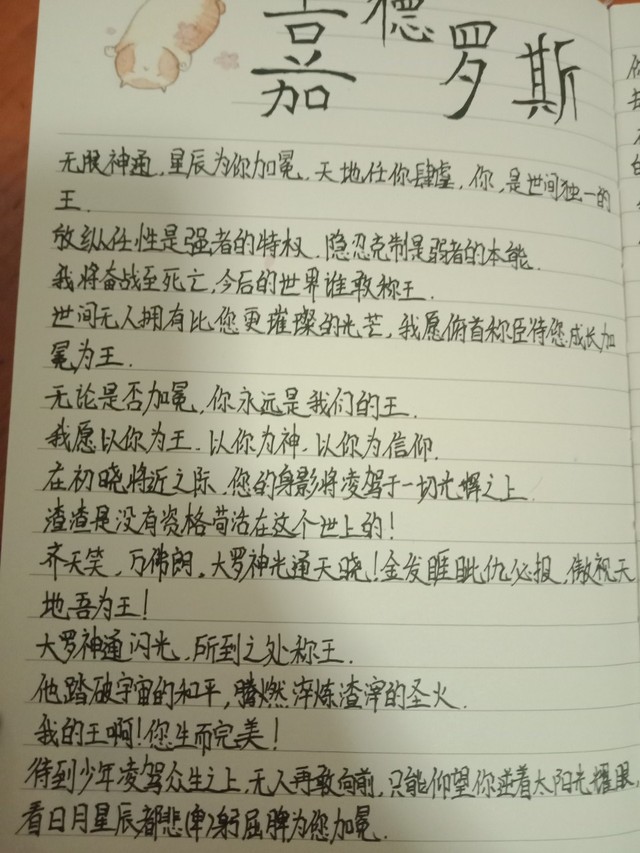 嘉德罗斯
无限神通，星辰为你加冕，天地任你肆虐，你，是世间独一的
王.
放纵任性是强者的特权.隐忍克制是弱者的本能.
我将奋战至死亡,今后的世界谁敢称王.
世间无人拥有比您更璀璨的光芒，我愿俯首称臣待您成长,加
冕为王.
无论是否加冕,你永远是我们的王.
我愿以你为王.以你为神.以你为信仰.
在初晓将近之际.您的身影将凌驾于一切光辉之上.
渣渣是没有资格苟活在这个世上的!
齐天笑，万佛朗。大罗神光通天晓!金发睚眦仇必报，傲视天
地吾为王!
大罗神通闪光,所到之处称王.
他踏破宇宙的和平，燃淬炼渣滓的圣火.
我的王啊!您生而完美!
待到少年凌驾众生之上,无人再敢向前,只能仰望你逆着太阳光耀眼,
看日月星辰都悲(卑)躬屈脾为您加冕.